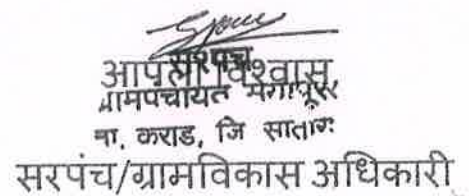 सरपंच
आपला विश्वासू,
ग्रामपंचायत
ता. कराड, जि सातारा
सरपंच/ग्रामविकास अधिकारी